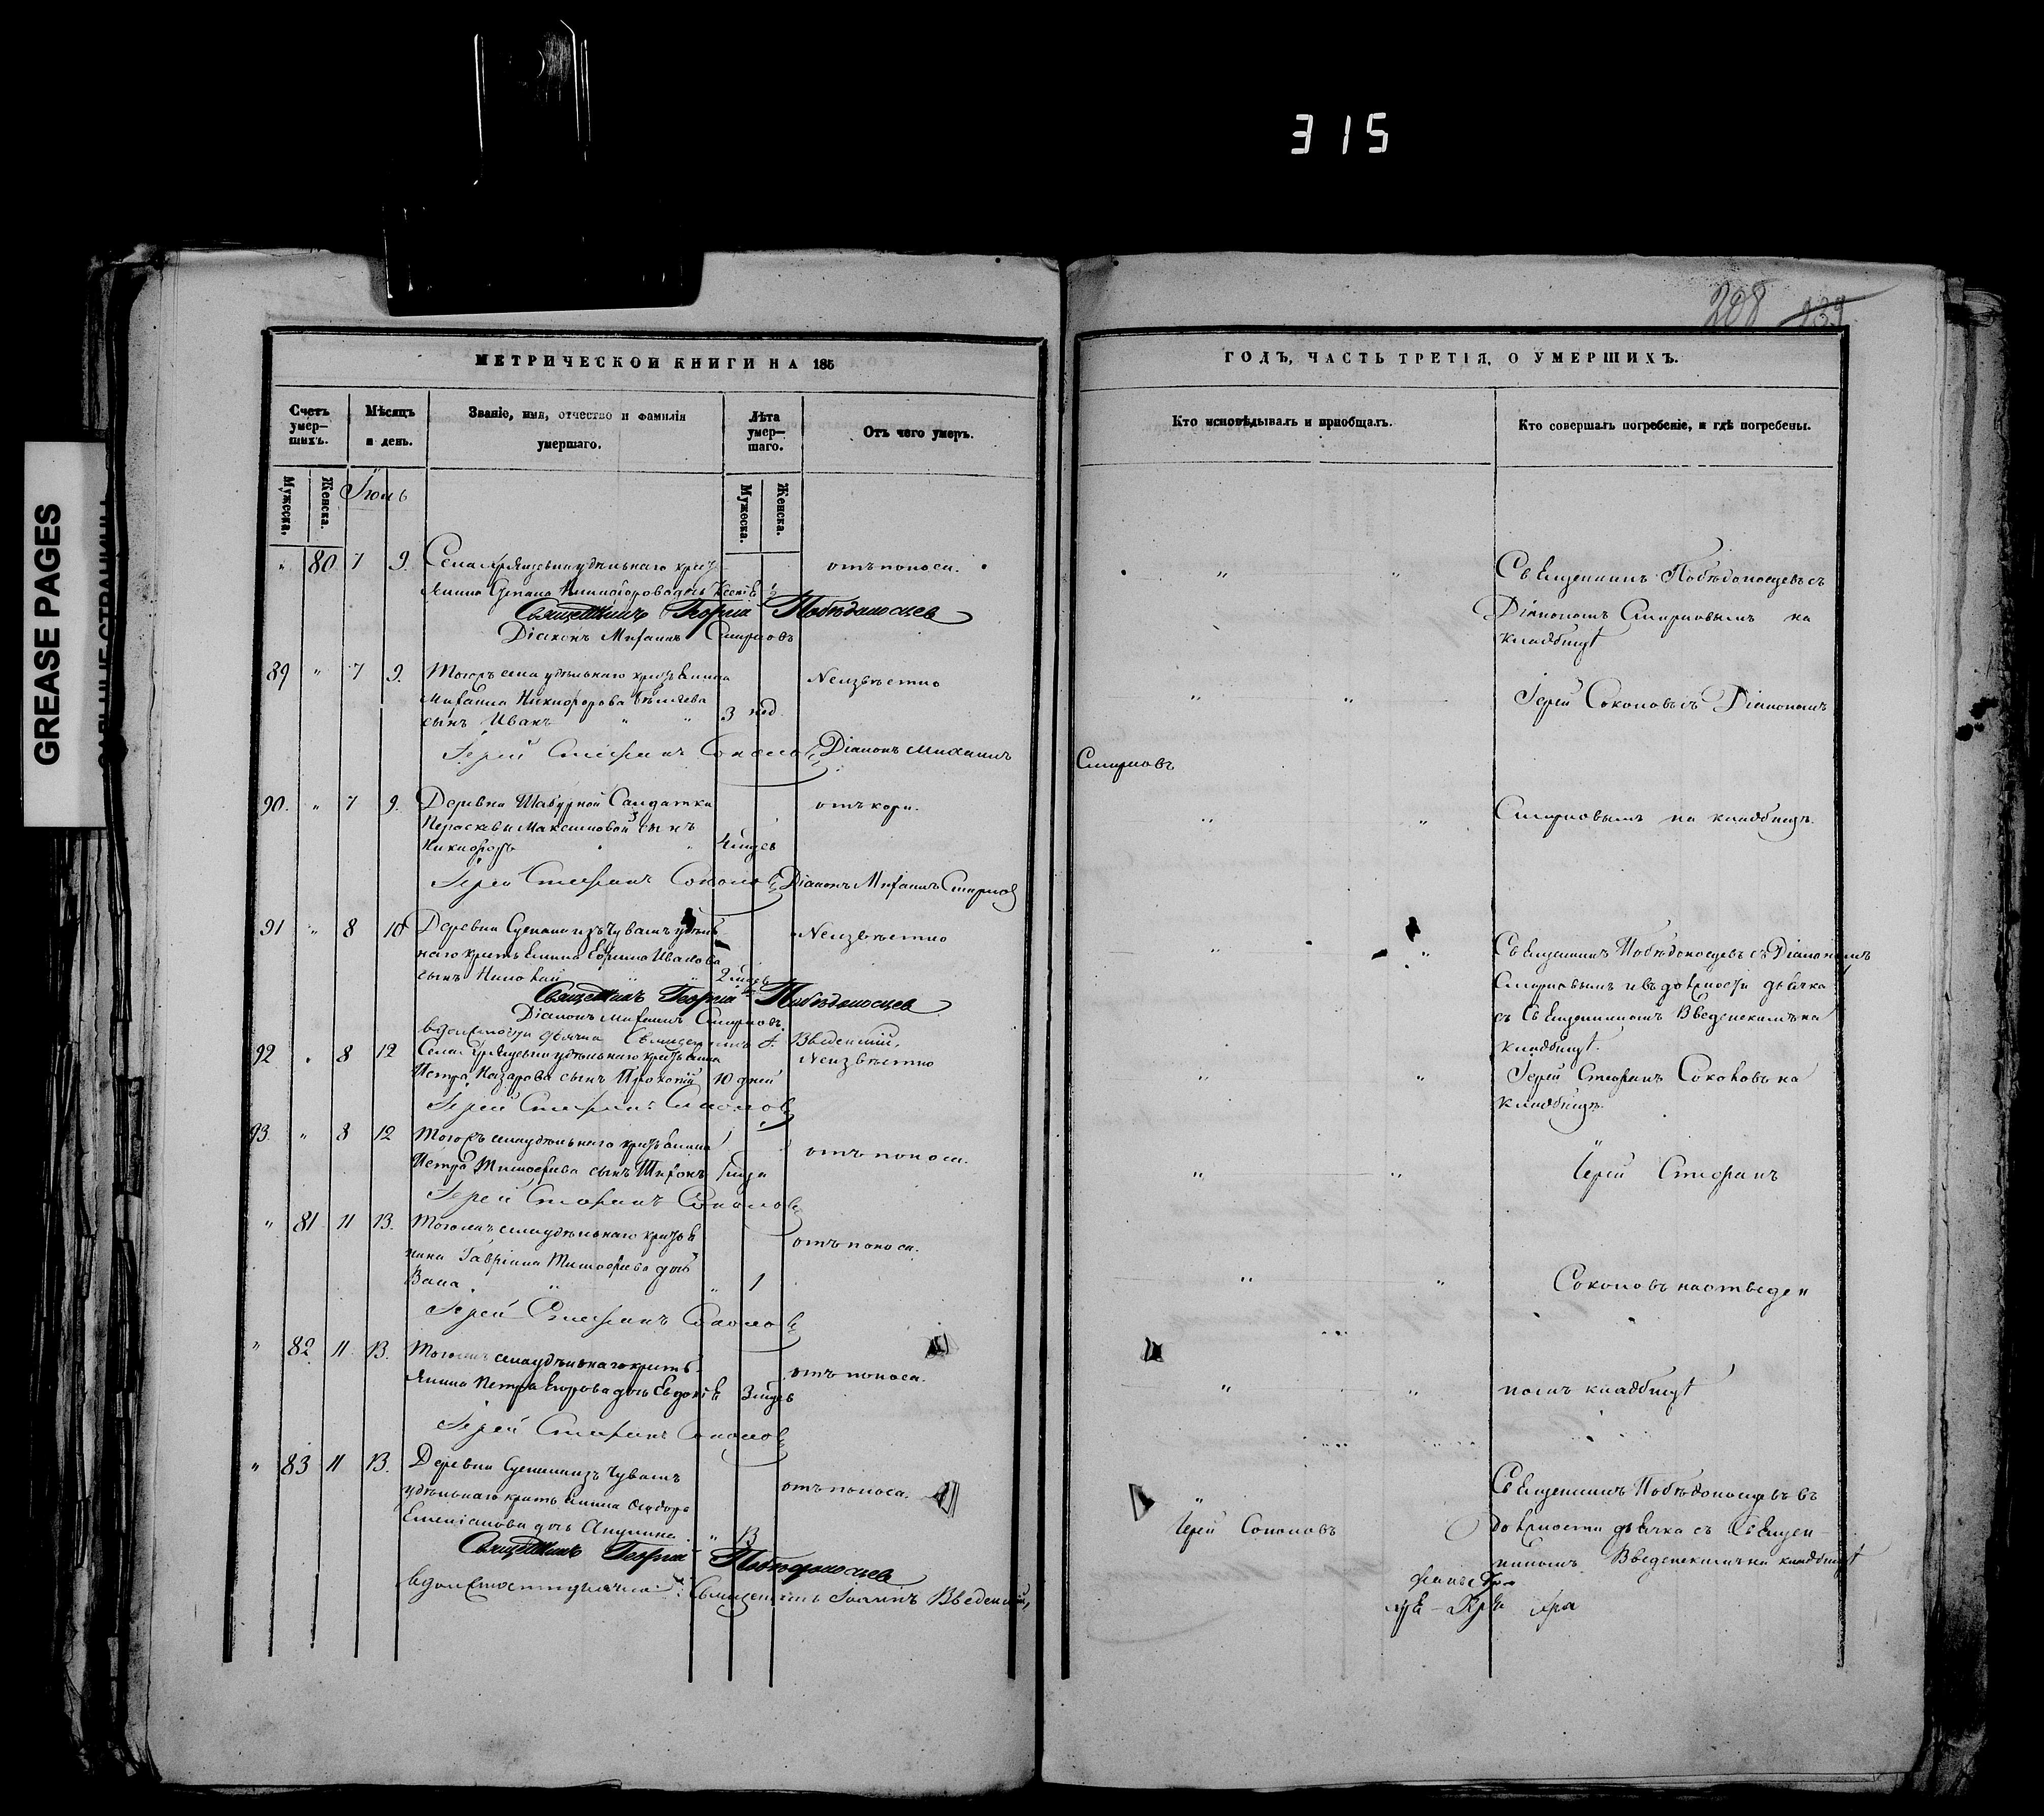 315
GREASE PAGES
208 239
МЕТРИЧЕСКОЙ КНИГИ НА 185
ГОДЪ, ЧАСТЬ ТРЕТІЯ, О УМЕРШИХЪ.
Счетъ умер-шихъ.
Мѣсяцъ и день.
Званіе, имя, отчество и фамилія умершаго.
Лѣта умер-шаго.
Отъ чего умеръ.
Кто исповѣдывалъ и пріобщалъ.
Кто совершалъ погребеніе, и гдѣ погребены.
Мужеска.
Женска.
Іюль
Мужеска.
Женска.
" 80 7 9. Села удѣльнаго крестъ отъ поноса.
Священникъ Побѣдоносцевъ съ
Священникъ Георгій Побѣдоносцев
Діаконъ Михаилъ Смирновъ
Діакономъ Смирновымъ на
кладбищѣ
89 " 7 9. Тогожъ села удѣльнаго крестьянина Неизвѣстно
Михаила Никифорова Бѣляева
сынъ Иванъ " " 3 нед.
Іерей Соколовъ съ Діакономъ
Іерей Стефанъ Соколовъ Діаконъ Михаилъ
Смирновъ
90. " 7 9. Деревни Солдатки отъ кори.
Параскевы Максимовой сынъ
Никифоръ 4 мцев
Смирновымъ на кладбищѣ.
Іерей Стефанъ Соколовъ Діаконъ Михаилъ Смирновъ
91 " 8 10 Деревни изъ чувашъ удѣль Неизвѣстно
наго крестьянина Ефима Иванова
сынъ Николай " " 2 мцев
Священникъ Побѣдоносцевъ съ Діакономъ
Священникъ Георгій Побѣдоносцев
Смирновымъ и въ должности дьячка
Діаконъ Михаилъ Смирновъ
съ Священникомъ Введенскимъ на
въ должности дьячка Священникъ І. Введенскій,
кладбищѣ.
92 " 8 12 Села удѣльнаго крестьянина Неизвѣстно
Петра Назарова сынъ Прокопій 10 дней
Іерей Стефанъ Соколовъ на
кладбищѣ.
Іерей Стефанъ Соколовъ
93. " 8 12 Тогожъ села удѣльнаго крестьянина отъ поноса.
Петра Тимофеева сынъ Тихонъ
Іерей Стефанъ
Іерей Стефанъ Соколовъ
" 81 11 13. села удѣльнаго крестья отъ поноса.
нина Гавріила Тимофеева дочь
1
Соколовъ на отведен
Іерей Стефанъ Соколовъ
" 82 11 13. села удѣльнаго кресть отъ поноса.
янина Петра Егорова дочь Евдокія 3 мцев
номъ кладбищѣ
Іерей Стефанъ Соколовъ
" 83 11 13. Деревни изъ чувашъ
удѣльнаго крестьянина Федора отъ поноса.
Емеліанова дочь Акулина " 13
Іерей Соколовъ
Священникъ Побѣдоносцевъ въ
должности дьячка съ Священ-
никомъ Введенскимъ на кладбищѣ
Священникъ Георгій Побѣдоносцев
въ должности дьячка Священникъ Іоаннъ Введенскій,